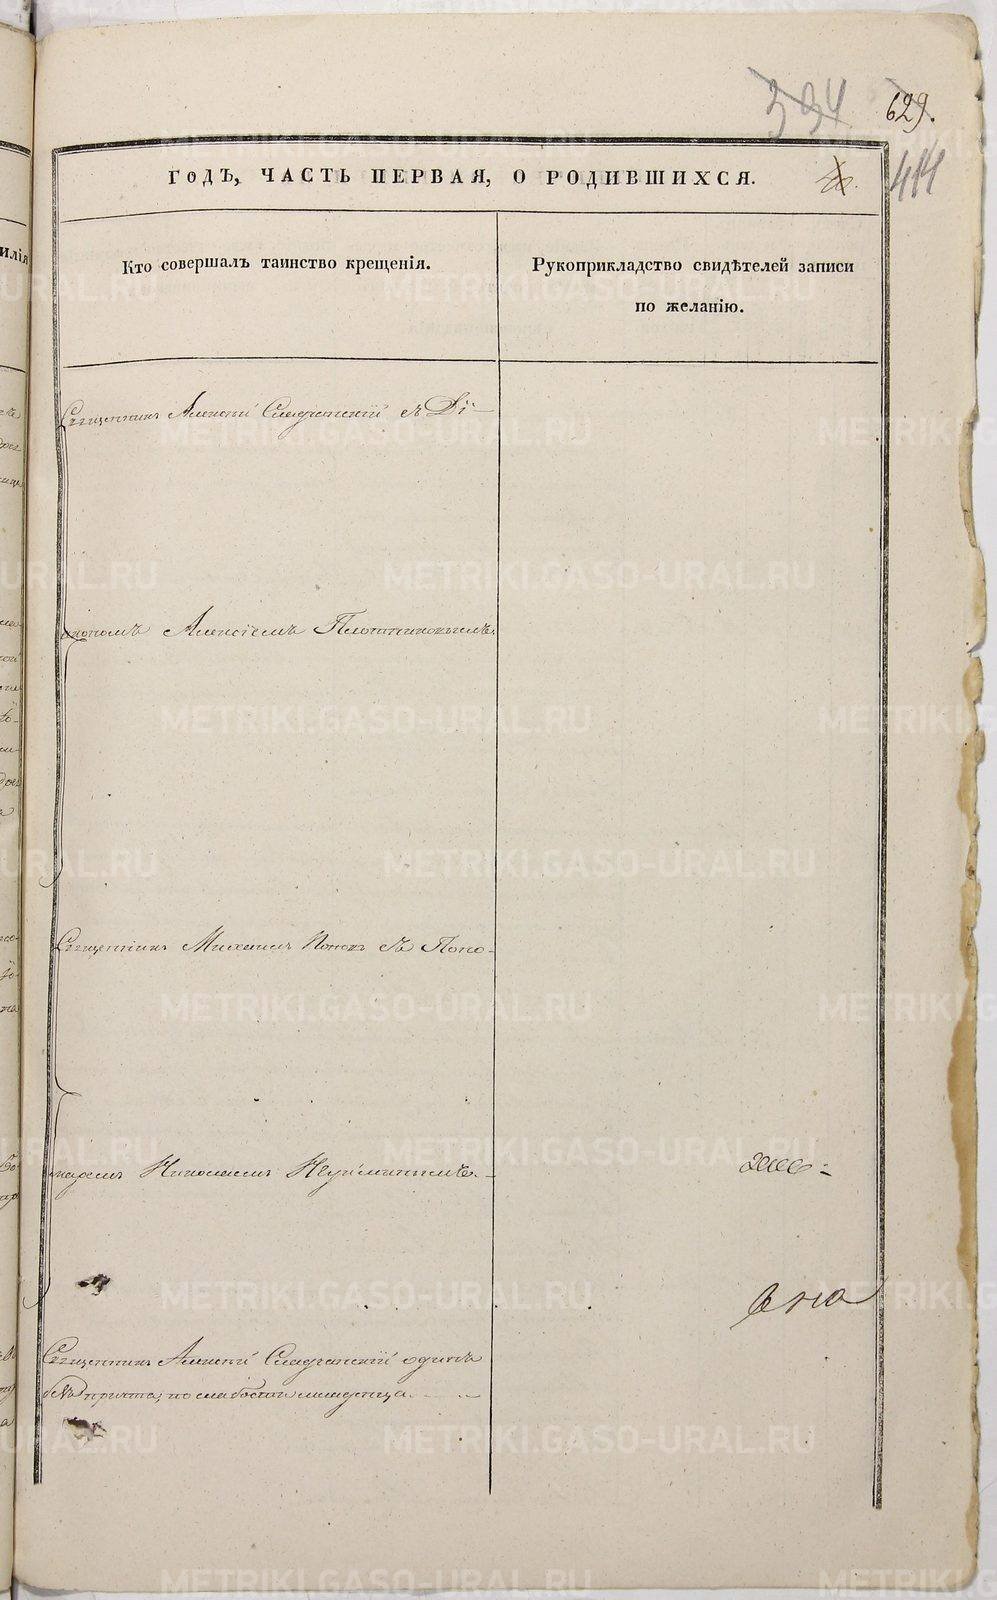 394
629.
414
ГОДЪ, ЧАСТЬ ПЕРВАЯ, О РОДИВШИХСЯ.
илія
Кто совершалъ таинство крещенія.
Рукоприкладство свидѣтелей записи
по желанію.
Священникъ Алексій Сладчанскій съ Ді-
акономъ Алексіемъ Плотниковымъ.
Священникъ Михаилъ Поповъ съ Поно-
маремъ Николаемъ Неуйминымъ.
Священникъ Алексій Сладчанскій одинъ
безъ причта, по слабости младенца.
METRIKI.GASO-URAL.RU